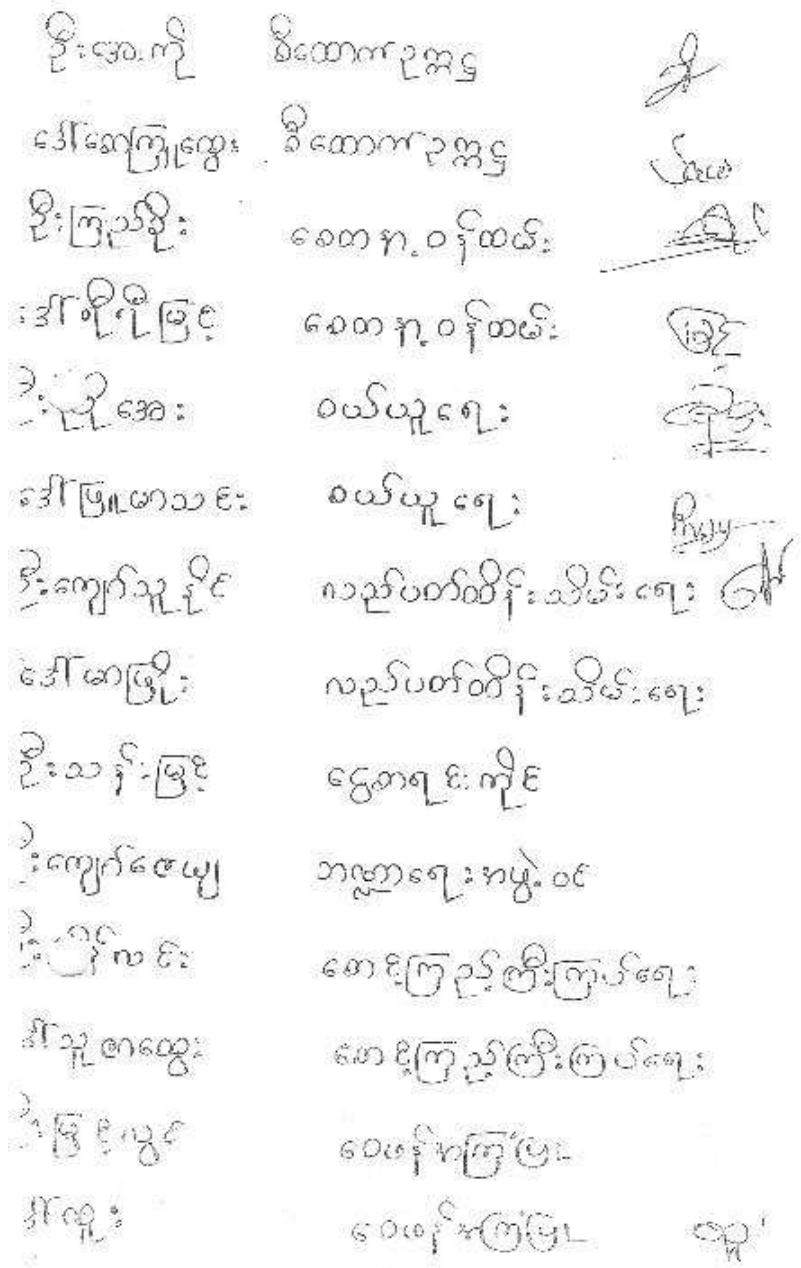 ဦးအေးကို စီထောက်ဥက္ကဋ္ဌ
ဒေါ်ဆေကြူထွေး စီထောက်ဥက္ကဋ္ဌ
ဦးကြည်ခိုး စေတနာ့ဝန်ထမ်း
ဒေါ်စိုးရီမြင့် စေတနာ့ဝန်ထမ်း မြင့်
ညိုအေး ဝယ်ယူရေး
ဒေါ်ဖြူမာသင်း ဝယ်ယူရေး
ဦးကျော်သူနိုင် လည်ပတ်ထိန်းသိမ်းရေး
ဒေါ်မာဖြိုး လည်ပတ်ထိန်းသိမ်းရေး
ဦးသန်းမြင့် ငွေစာရင်းကိုင်
ဦးကျော်ဇေယျ ဘဏ္ဍာရေးအဖွဲ့ဝင်
လင်း စောင့်ကြည့်ကြီးကြပ်ရေး
ဒေါ်သူဇာထွေး စောင့်ကြည့်ကြီးကြပ်ရေး
ဦးမြင့်လွင် ဝေဖန်အကြံပြု
ဒေါ်လှူး ဝေဖန်အကြံပြု